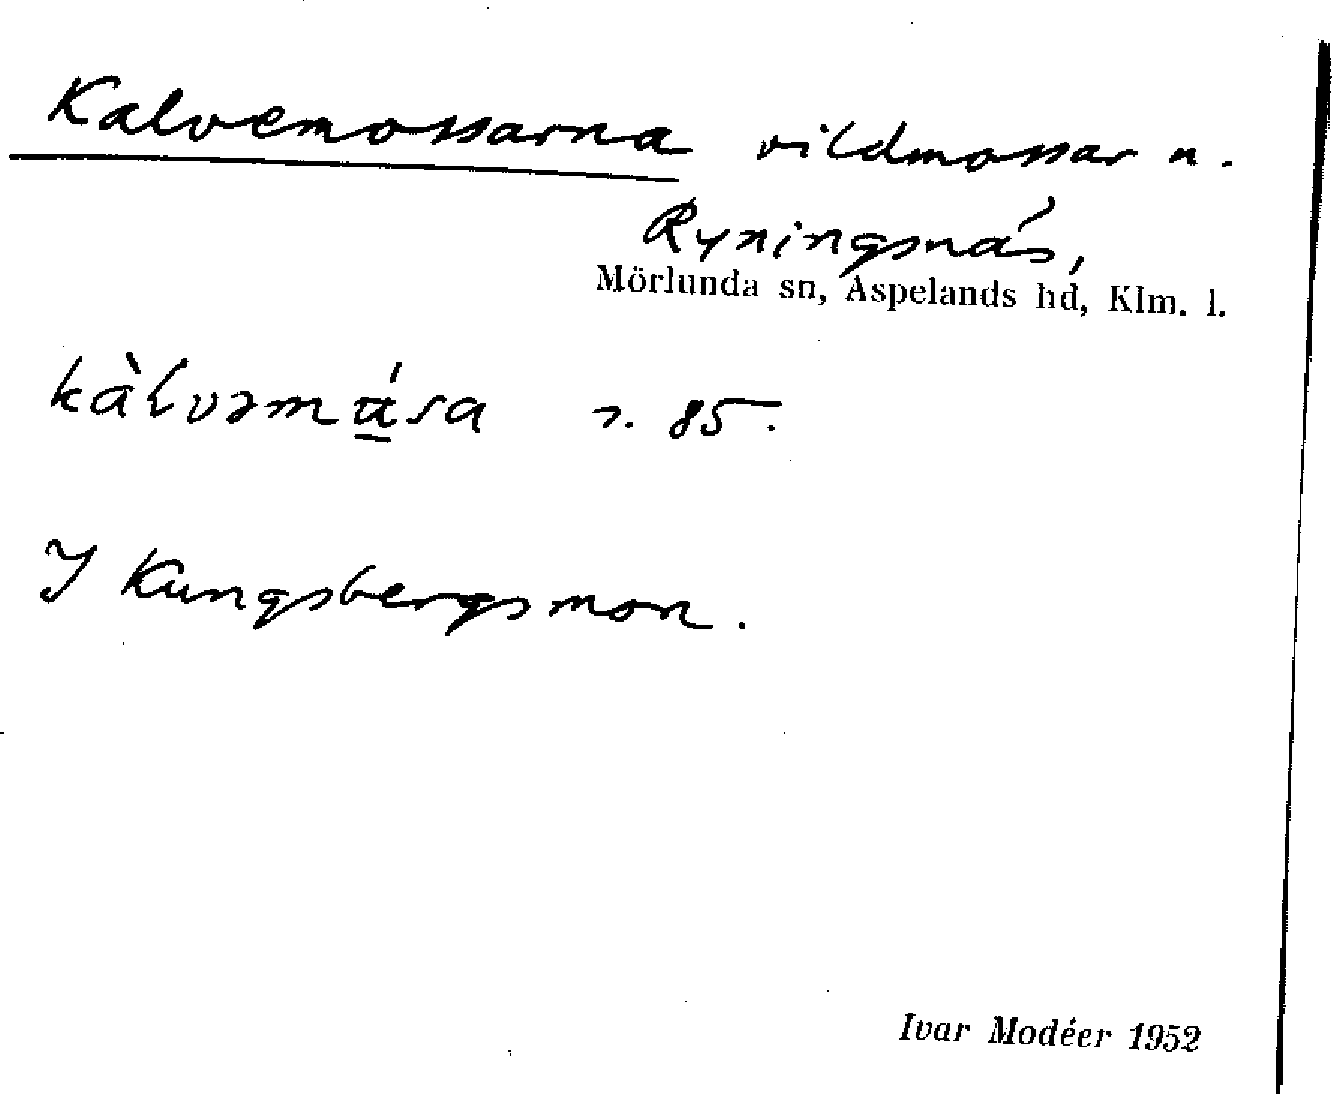 Kalvemossarna vildmossar u.
Ryningsnäs,
Mörlunda sn, Aspelands hd, Klm. l.
kàlvəmá̲sa r. 85.
I Kungsbergsmon.
Ivar Modéer 1952